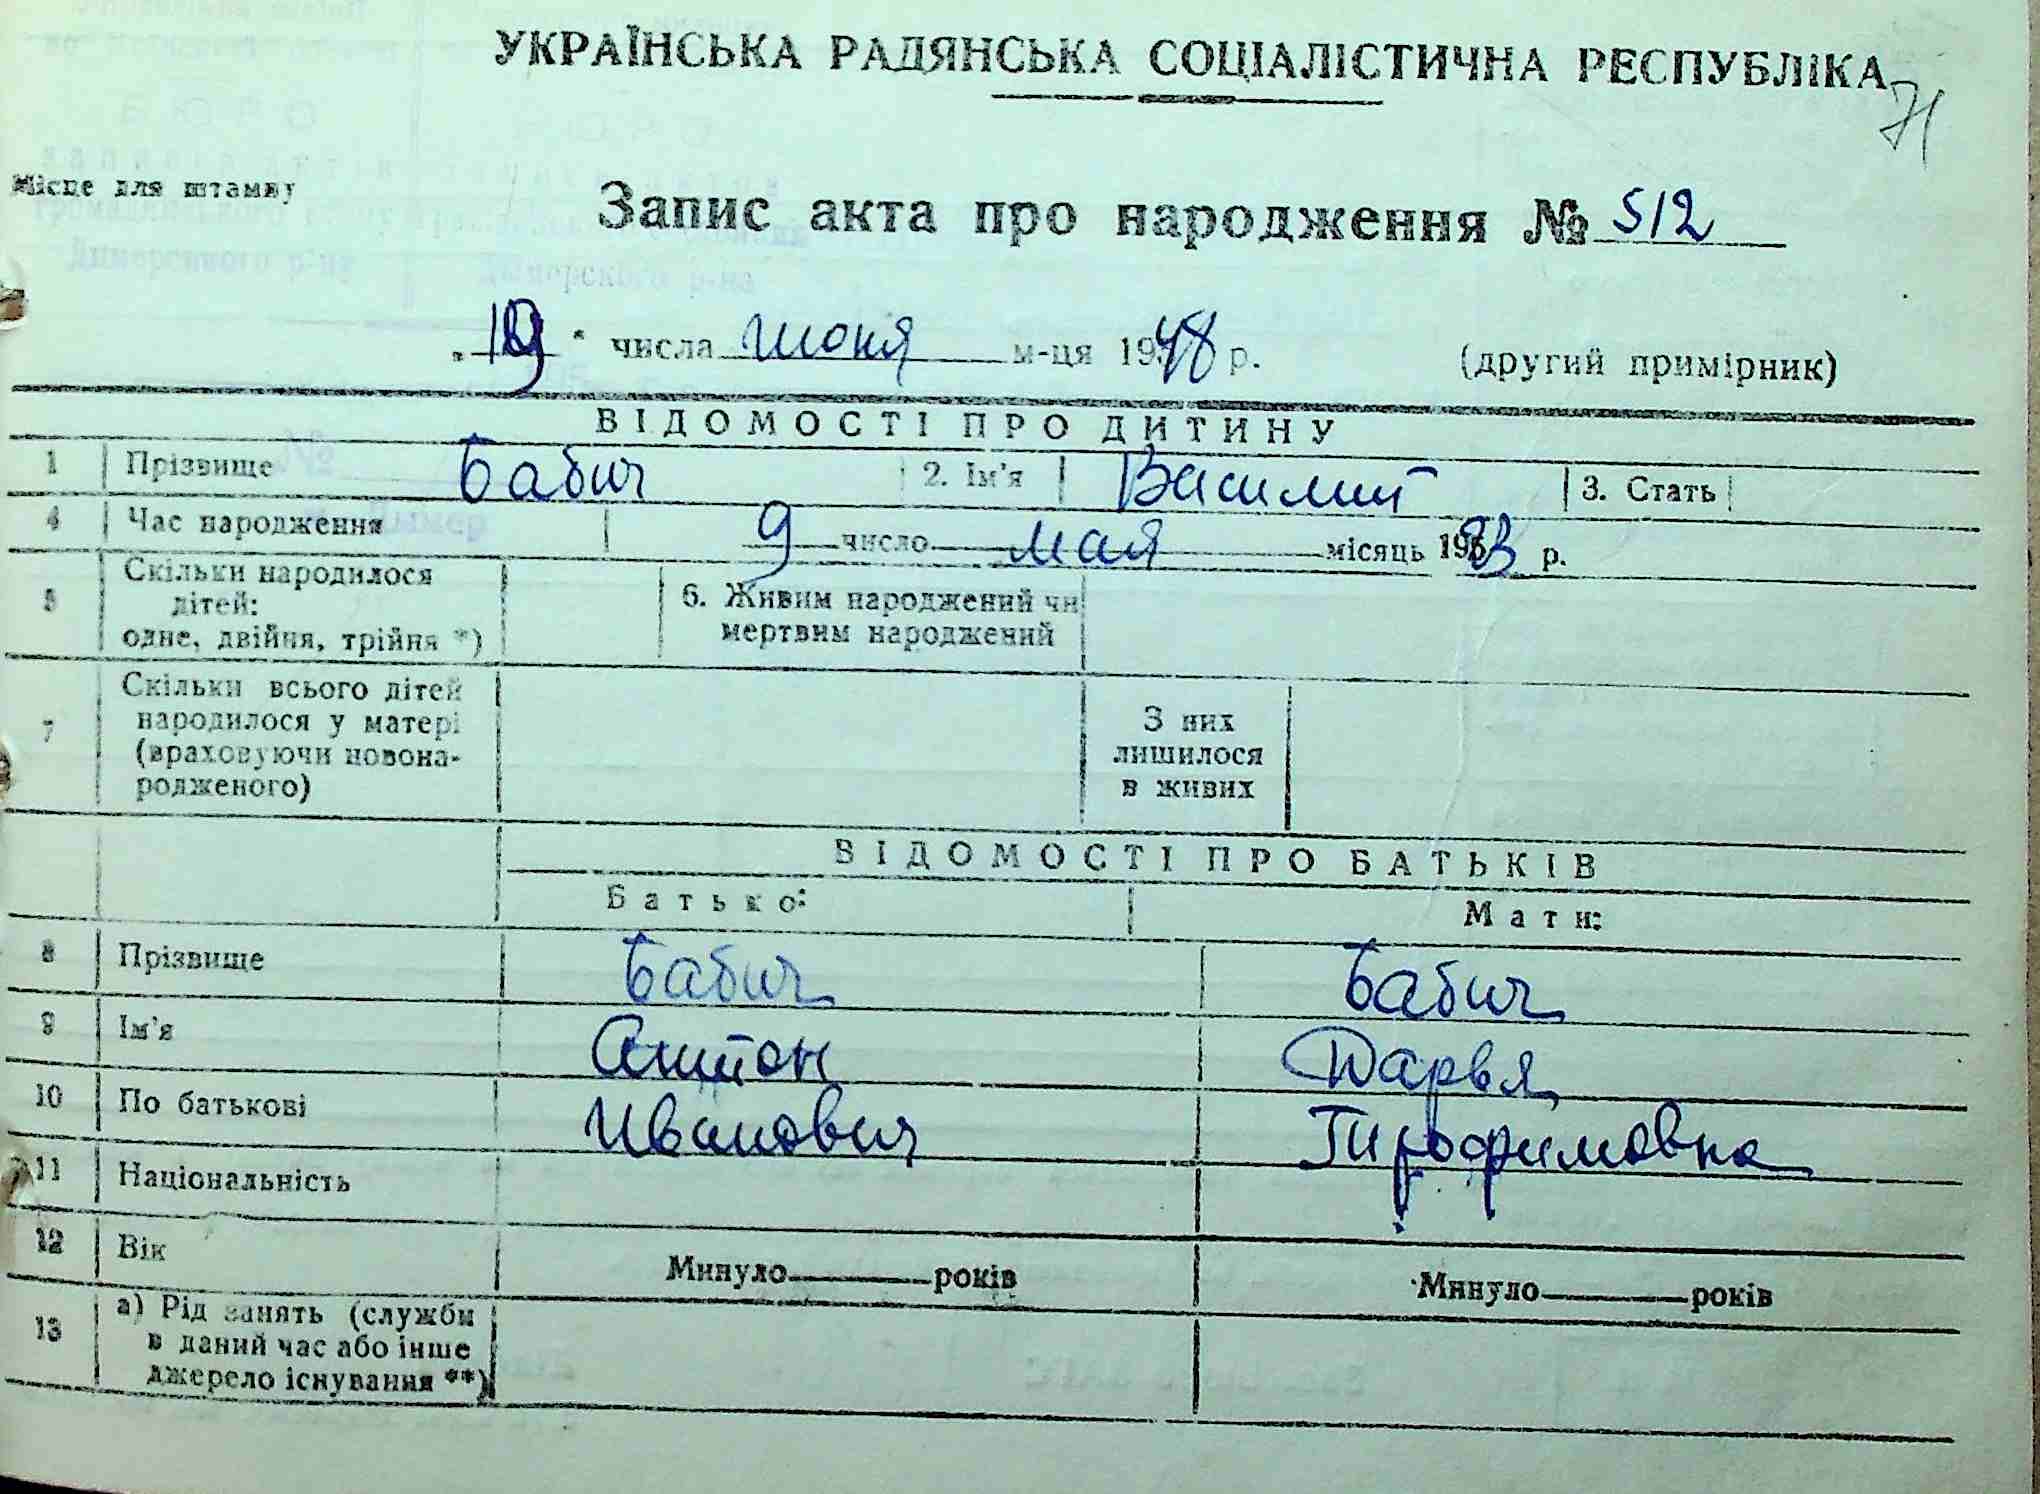 УКРАЇНСЬКА РАДЯНСЬКА СОЦІАЛІСТИЧНА РЕСПУБЛІКА
71
Місце для штампу
Запис акта про народження № 512
"19" числа июня м-ця 1948 р. (другий примірник)
ВІДОМОСТІ ПРО ДИТИНУ
1 Прізвище Бабич 2. Ім'я Василий 3. Стать
4 Час народження 9 число мая місяць 19 р.
5 Скільки народилося дітей: одне, двійня, трійня *)
6. Живим народжений чи мертвим народжений
7 Скільки всього дітей народилося у матері (враховуючи новонародженого)
З них лишилося в живих
ВІДОМОСТІ ПРО БАТЬКІВ
Батько: Мати:
8 Прізвище Бабич Бабич
9 Ім'я Антон Дарья
10 По батькові Иванович Трофимовна
11 Національність
12 Вік Минуло років Минуло років
13 а) Рід занять (служби в даний час або інше джерело існування **)